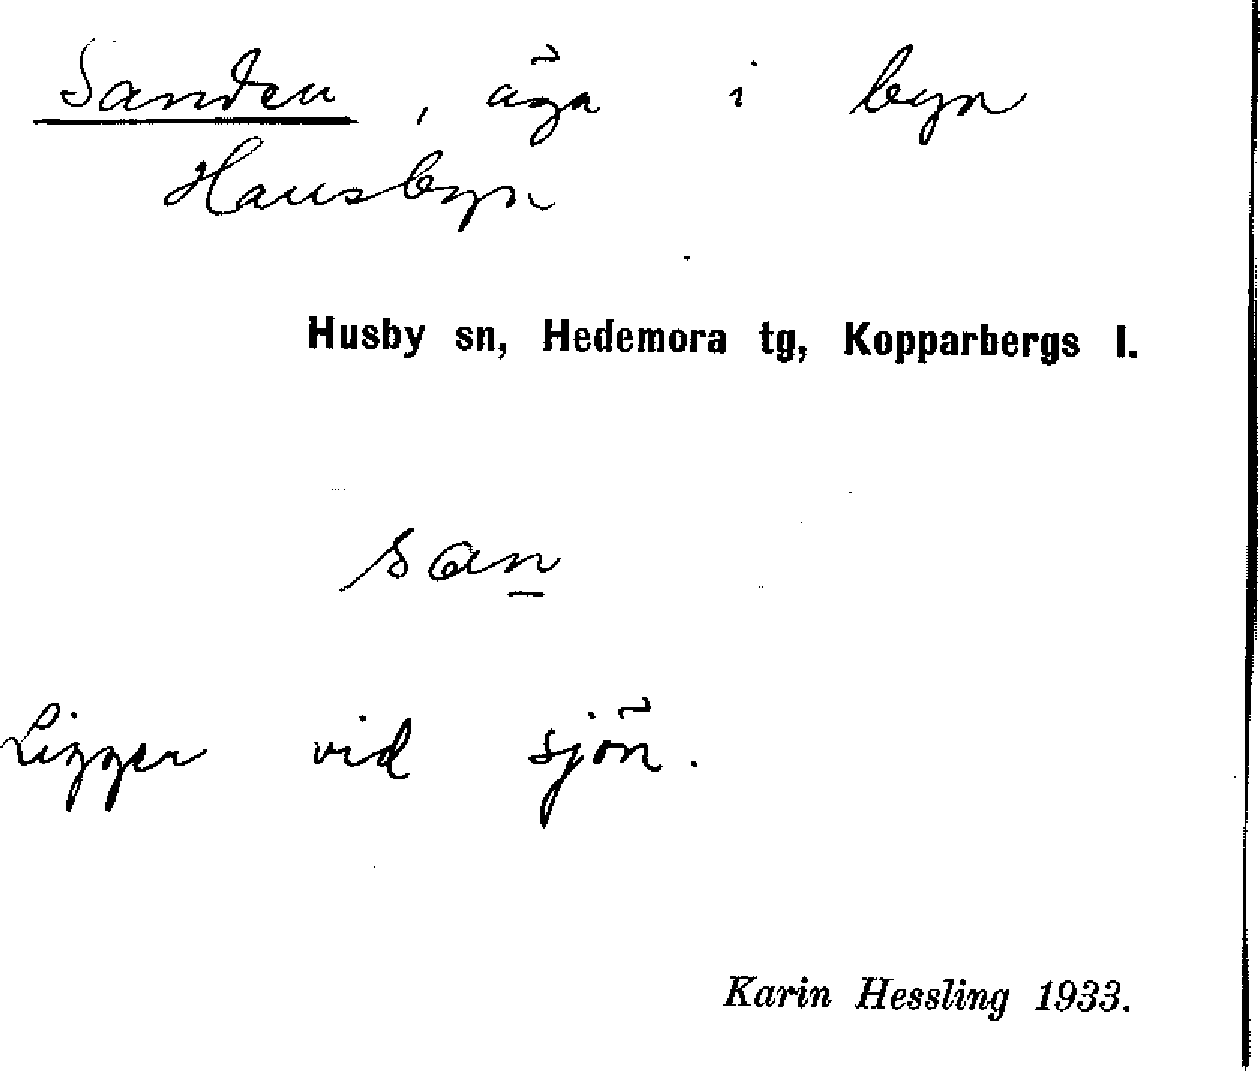 Sanden, äga i byn
Hansbyn
Husby sn, Hedemora tg, Kopparbergs l.
san
Ligger vid sjön.
Karin Hessling 1933.